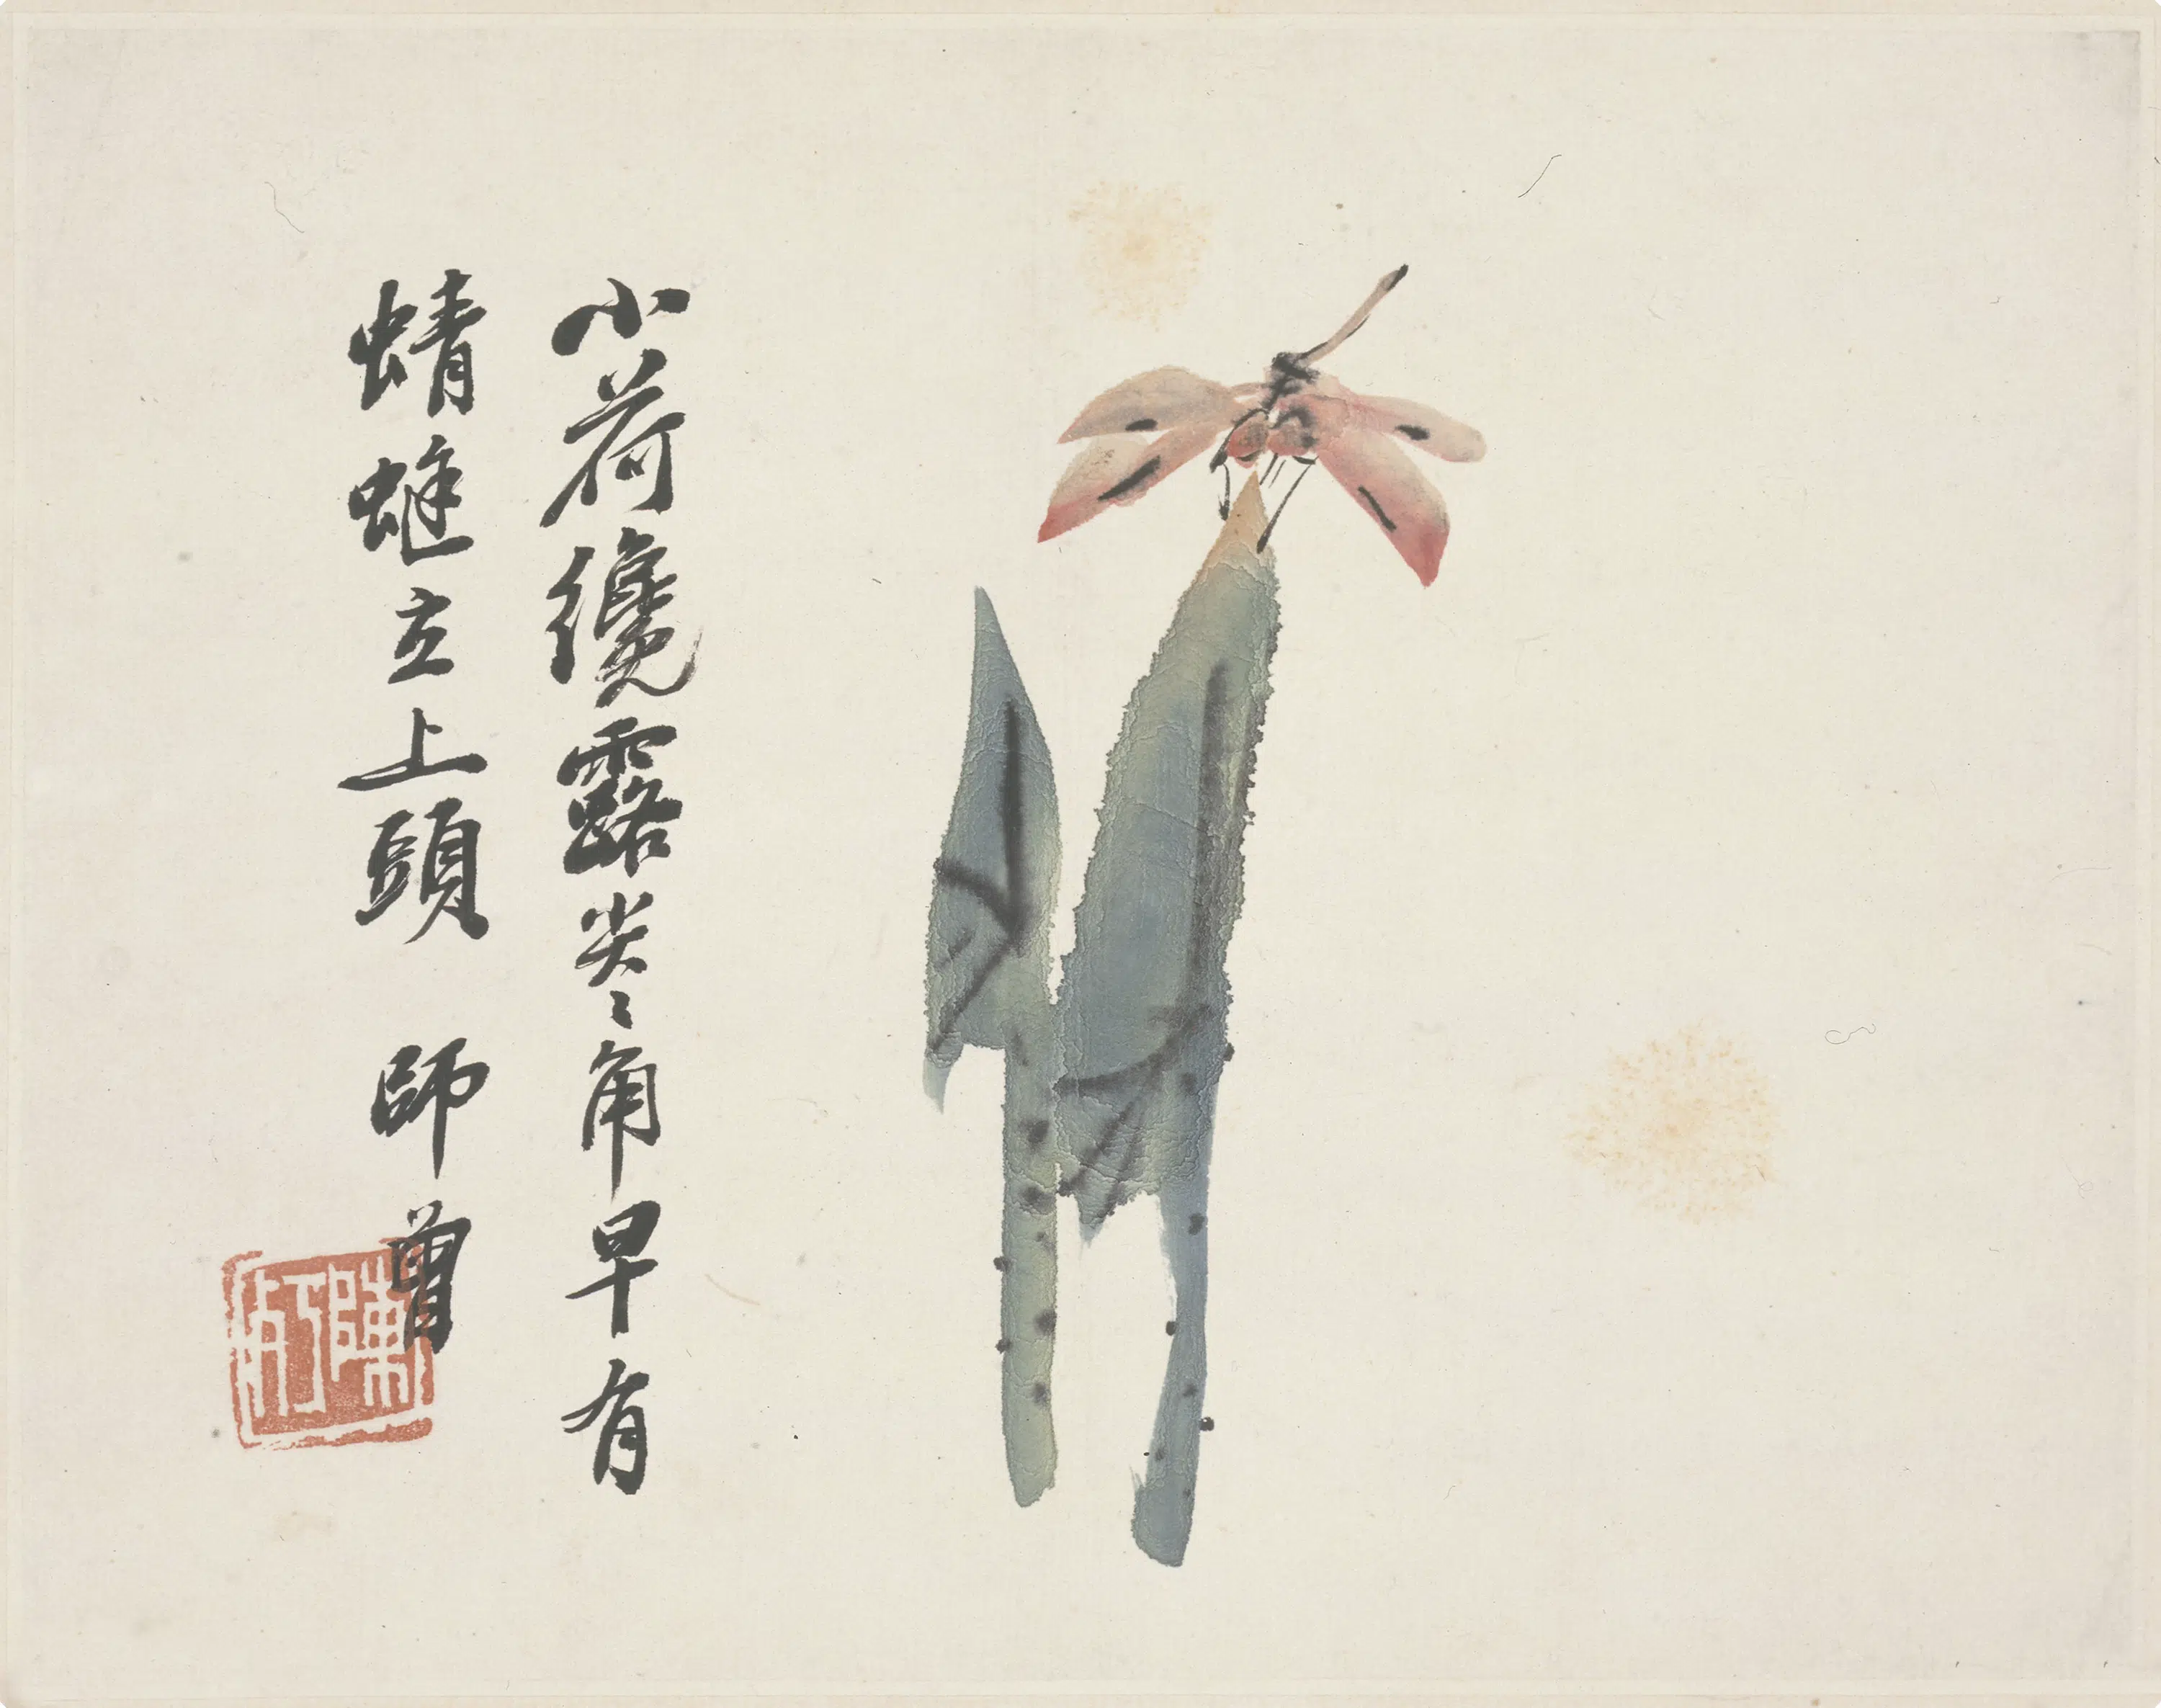 小荷纔露尖〻角早有
蜻蜓立上頭 師曾
陳朽